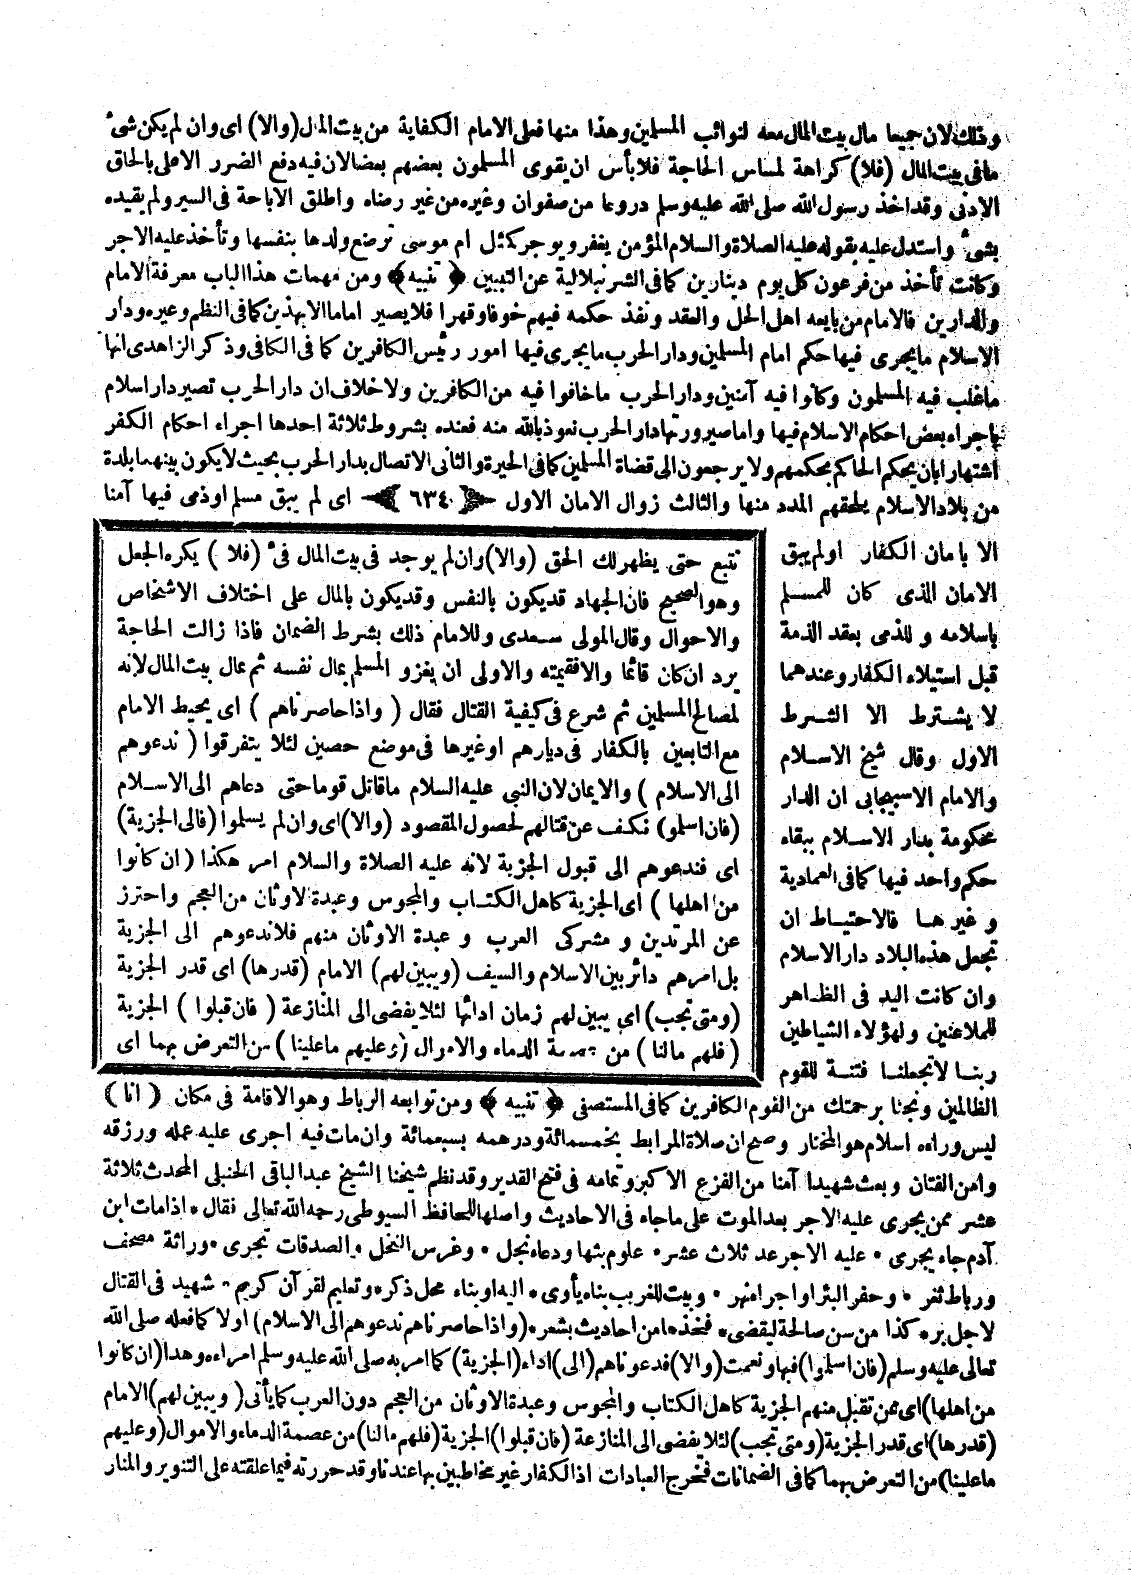 وذلك لان جميعا مال بيت المال معه لنوائب المسلمين وهذا منها فعلى الامام الكفاية من بيت المال (والا) اى وان لم يكن شىء
مافى بيت المال (فلا) كراهة لمساس الحاجة فلا بأس ان يقوى المسلمون بعضهم بعضا لان فيه دفع الضرر الاعلى بالحاق
الادنى وقد اخذ رسول الله صلى الله عليه وسلم دروعا من صفوان وغيره من غير رضاه واطلق الاباحة فى السير ولم يقيده
بشىء واستدل عليه بقوله عليه الصلاة والسلام المؤمن يغفر ويوجر كمثل ام موسى ترضع ولدها بنفسها وتأخذ عليه الاجر
وكانت تأخذ من فرعون كل يوم دينارين كما فى الشرنبلالية عن التبيين ﴿ تنبيه ﴾ ومن مهمات هذا الباب معرفة الامام
والدارين فالامام من بايعه اهل الحل والعقد ونفذ حكمه فيهم خوفا وقهرا فلا يصير اماما الا بهذين كما فى النظم وغيره ودار
الاسلام ما يجرى فيها حكم امام المسلمين ودار الحرب ما يجرى فيها امور رئيس الكافرين كما فى الكافى وذكر الزاهدى انها
ما غلب فيه المسلمون وكانوا فيه آمنين ودار الحرب ما خافوا فيه من الكافرين ولا خلاف ان دار الحرب تصير دار اسلام
باجراء بعض احكام الاسلام فيها واما صيرورتها دار الحرب نعوذ بالله منه فعنده بشروط ثلاثة احدها اجراء احكام الكفر
اشتهارا بان يحكم الحاكم بحكمهم ولا يرجعون الى قضاة المسلمين كما فى الحيرة والثانى الاتصال بدار الحرب بحيث لا يكون بينهما بلدة
من بلاد الاسلام يلحقهم المدد منها والثالث زوال الامان الاول ﴿ ٦٣٤ ﴾ اى لم يبق مسلم او ذمى فيها آمنا
الا بامان الكفار اولم يبق
الامان الذى كان للمسلم
باسلامه و للذمى بعقد الذمة
قبل استيلاء الكفار وعندهما
لا يشترط الا الشرط
الاول وقال شيخ الاسلام
والامام الاسبيجابى ان الدار
محكومة بدار الاسلام ببقاء
حكم واحد فيها كما فى العمادية
و غيرها فالاحتياط ان
تجعل هذه البلاد دار الاسلام
وان كانت اليد فى الظاهر
للملاعنين ولهؤلاء الشياطين
ربنا لاتجعلنا فتنة للقوم
تتبع حتى يظهر لك الحق (والا) وان لم يوجد فى بيت المال فىء (فلا ) يكره الجعل
وهو الصحيح فان الجهاد قد يكون بالنفس وقد يكون بالمال على اختلاف الاشخاص
والاحوال وقال المولى سعدى وللامام ذلك بشرط الضمان فاذا زالت الحاجة
يرد ان كان قائما والا فقيمته والاولى ان يغزو المسلم بمال نفسه ثم بمال بيت المال لانه
لمصالح المسلمين ثم شرع فى كيفية القتال فقال ( واذا حاصرناهم ) اى يحيط الامام
مع التابعين بالكفار فى ديارهم او غيرها فى موضع حصين لئلا يتفرقوا ( ندعوهم
الى الاسلام ) والايمان لان النبى عليه السلام ما قاتل قوما حتى دعاهم الى الاسلام
(فان اسلموا) نكف عن قتالهم لحصول المقصود (والا) اى وان لم يسلموا (فالى الجزية)
اى فندعوهم الى قبول الجزية لانه عليه الصلاة والسلام امر هكذا ( ان كانوا
من اهلها ) اى الجزية كاهل الكتاب والمجوس وعبدة الاوثان من العجم واحترز
عن المرتدين و مشركى العرب و عبدة الاوثان منهم فلا ندعوهم الى الجزية
بل امرهم دائر بين الاسلام والسيف (ويبين لهم) الامام (قدرها) اى قدر الجزية
(ومتى تجب) اى يبين لهم زمان ادائها لئلا يفضى الى المنازعة ( فان قبلوا ) الجزية
( فلهم مالنا ) من عصمة الدماء والاموال (وعليهم ماعلينا ) من التعرض بهما اى
الظالمين ونجنا برحمتك من القوم الكافرين كما فى المستصفى ﴿ تنبيه ﴾ ومن توابعه الرباط وهو الاقامة فى مكان ( انا )
ليس وراءه اسلام هو المختار وصح ان صلاة المرابط بخمسمائة ودرهمه بسبعمائة وان مات فيه اجرى عليه عمله ورزقه
وامن الفتان وبعث شهيدا آمنا من الفزع الاكبر وتمامه فى فتح القدير وقد نظم شيخنا الشيخ عبد الباقى الحنبلى المحدث ثلاثة
عشر ممن يجرى عليه الاجر بعد الموت على ماجاء فى الاحاديث واصلها للحافظ السيوطى رحمه الله تعالى فقال • اذا مات ابن
آدم جاء يجرى • عليه الاجر عد ثلاث عشر • علوم بثها ودعاء نجل • وغرس النخل • الصدقات تجرى • وراثة مصحف
ورباط ثغر • وحفر البئر او اجراء نهر • وبيت للغريب بناه يأوى • اليه او بناء محل ذكر • وتعليم لقرآن كريم • شهيد فى القتال
لاجل بر • كذا من سن صالحة ليقفى • فخذها من احاديث بشعر • (واذا حاصرناهم ندعوهم الى الاسلام) اولا كما فعله صلى الله
تعالى عليه وسلم (فان اسلموا) فبها ونعمت (والا) فدعوناهم (الى) اداء (الجزية) كما امر به صلى الله عليه وسلم امراءه وهذا (ان كانوا
من اهلها) اى ممن تقبل منهم الجزية كاهل الكتاب والمجوس وعبدة الاوثان من العجم دون العرب كما يأتى ( ويبين لهم) الامام
(قدرها) اى قدر الجزية (ومتى تجب) لئلا يفضى الى المنازعة (فان قبلوا) الجزية (فلهم مالنا) من عصمة الدماء والاموال (وعليهم
ماعلينا) من التعرض بهما كما فى الضمانات فتخرج العبادات اذ الكفار غير مخاطبين بها عندنا وقد حررته فيما علقته على التنوير والمنار